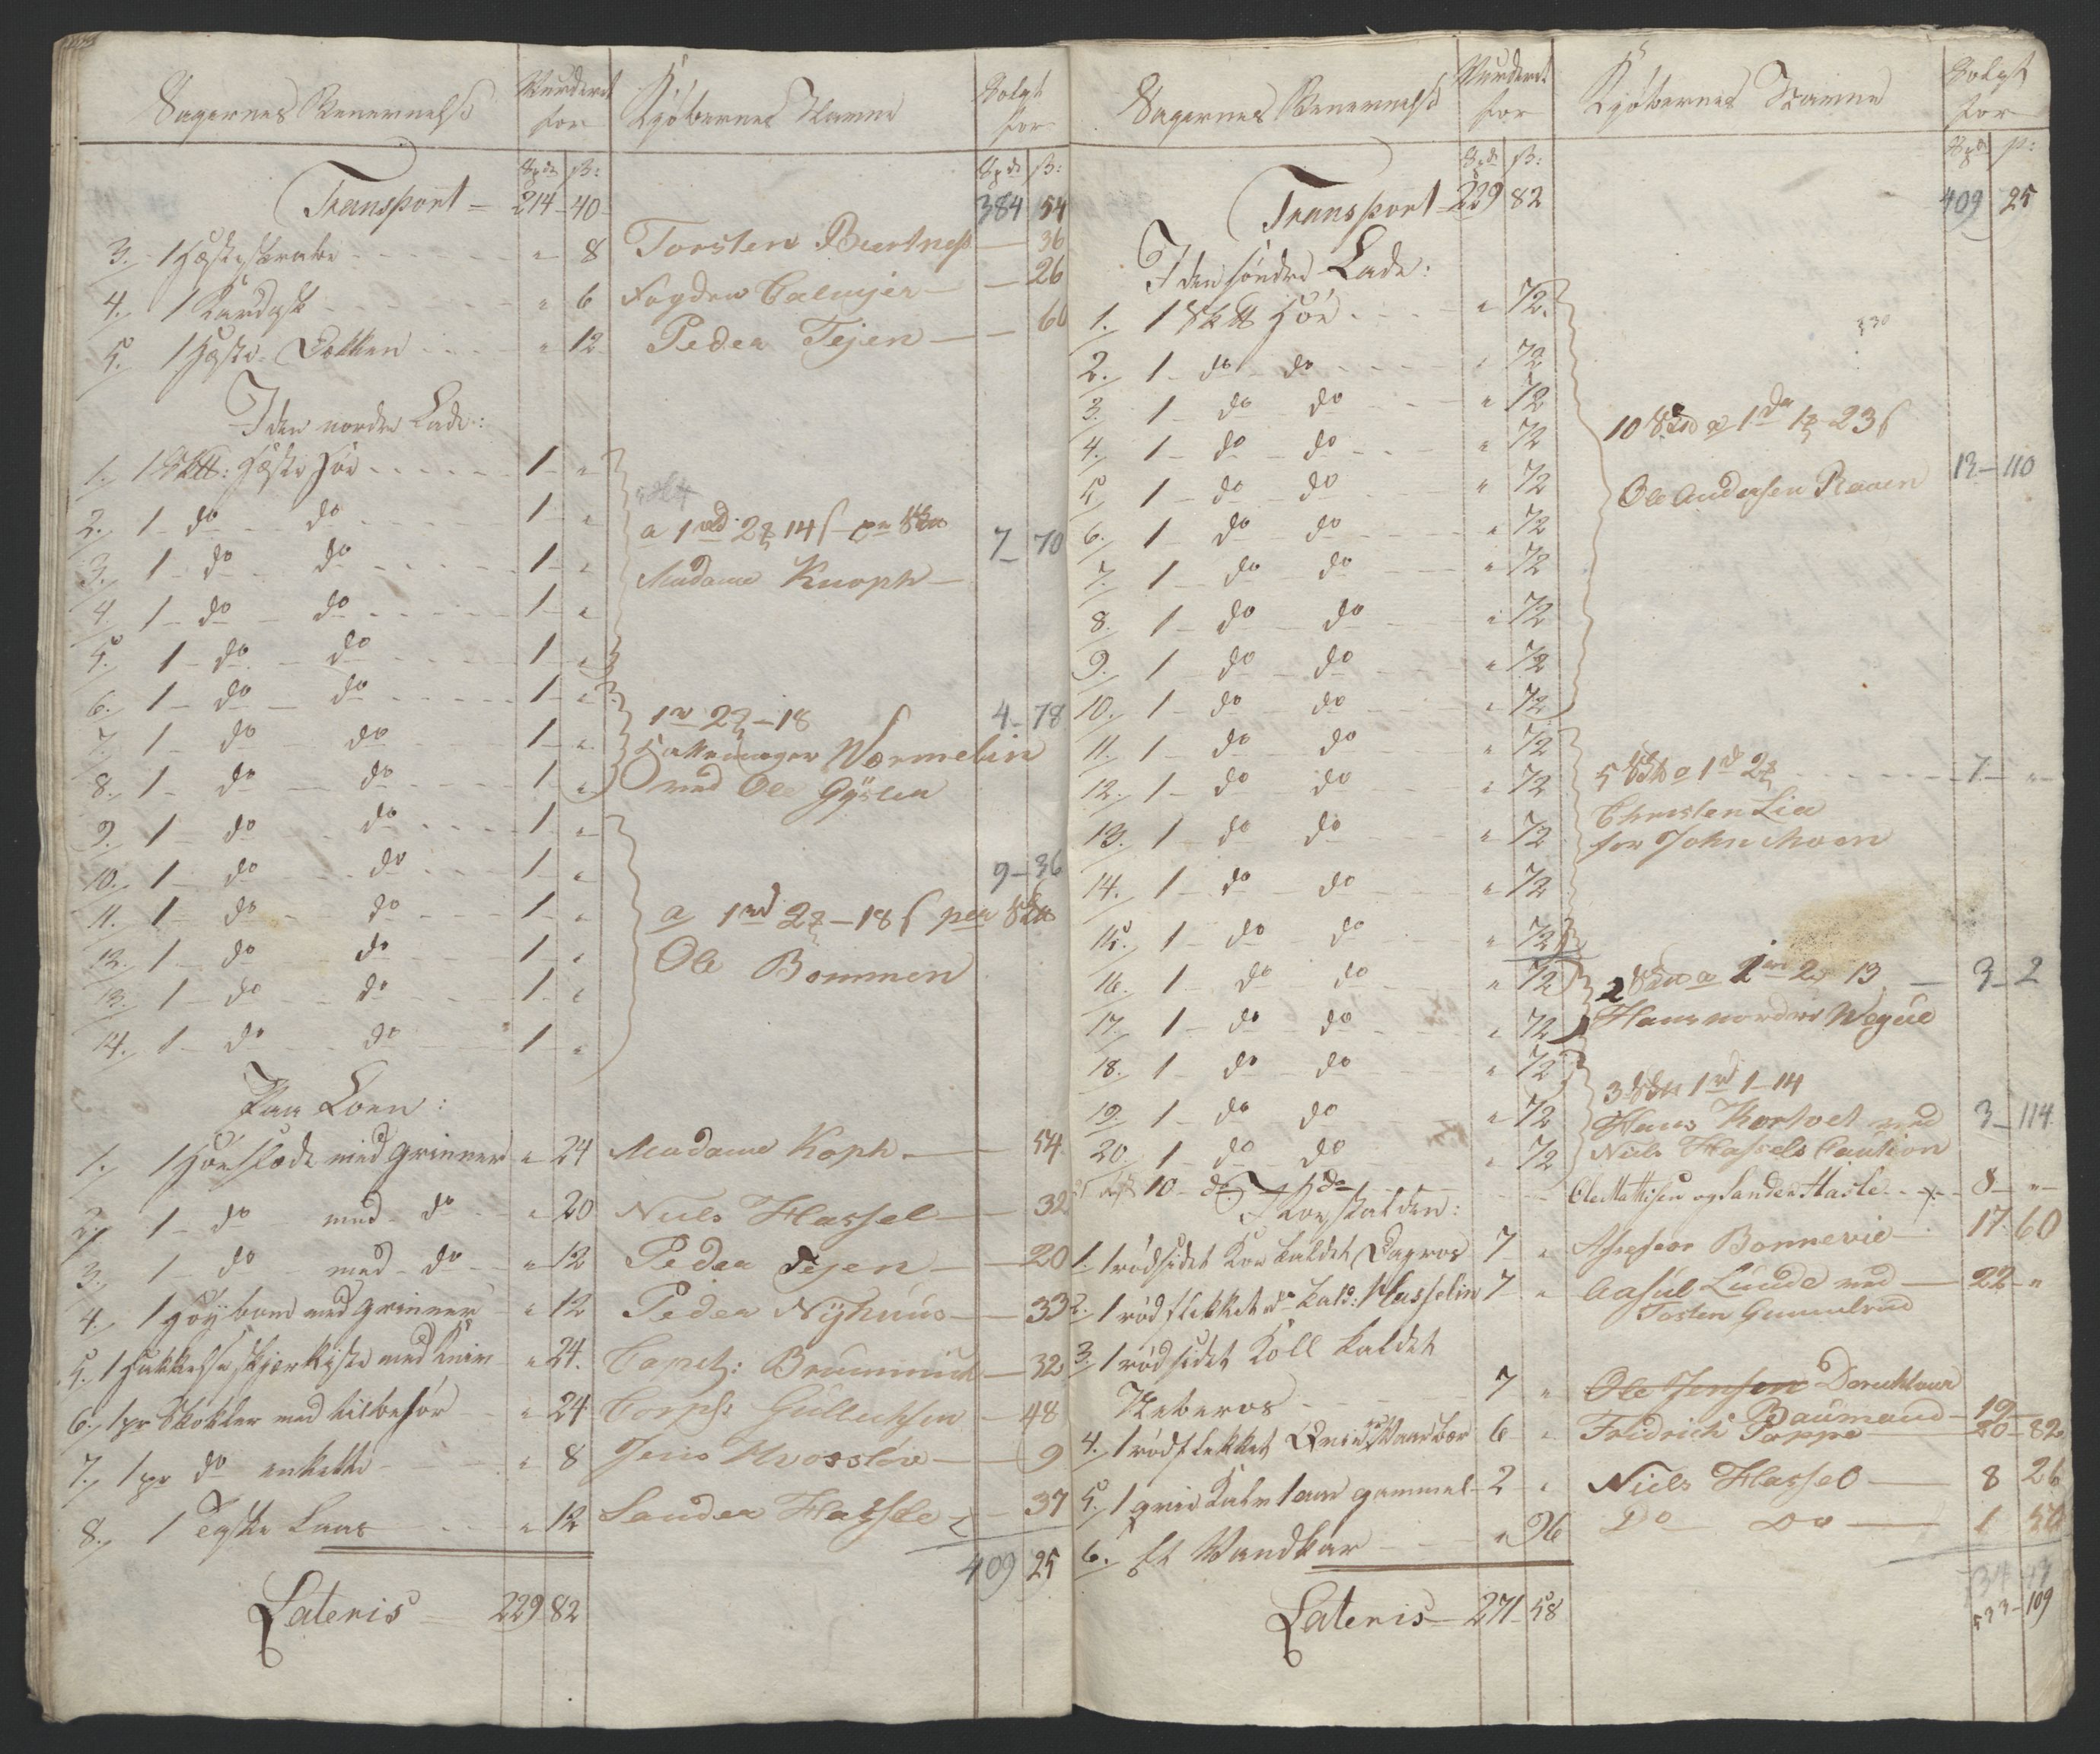 Sagernes Benevnelse Vurderet for Kjøbernes Navne Solgt for
Spd ß: Spd ß:
Transport 214 40 384 54
3. 1 Hesteskrabe " 8 Torsten Burtness 36
4. 1 Kardesk " 6 Fogden Calmejer 26
5. 1 Heste Dekken " 12 Peder Tejen 60
I den nordre Lade:
1. 1 Sk℔: Heste Høe 1 "
2. 1 do do 1 "
a 1 rd 2 14 ß pr Sk℔ 7 70
3. 1 do do 1 "
Madame Knoph
4. 1 do do 1 "
5. 1 do do 1 "
6. 1 do do 1 "
1 2 18 4 78
7. 1 do do 1 "
Wormelin
8. 1 do do 1 "
med Ole
9. 1 do do 1 "
10. 1 do do 1 "
9 36
11. 1 do do 1 "
a 1 rd 2 18 ß per Sk℔
12. 1 do do 1 "
Ole Bommen
13. 1 do do 1 "
14. 1 do do 1 "
Paa Loen:
1. 1 Høeslæde med grinner " 24 Madame Koph 54
2. 1 do med do " 20 Niels Hassel 32
3. 1 do med do " 12 Peder Tejen 20
4. 1 Høybom med grinner " 12 Peder Nÿhuus 33
5. 1 Hakkelse skjærkiste med Kniv " 24. Capt: Brummick 32
6. 1 pr Skokler med tilbehør " 24 Corps: Gulbichsen 48
7. 1 pr do enkelte " 8 Jens 9
8. 1 Tyske Laas " 12 Sander Hassle 37
409 25
Lateris 229 82
Sagernes Benevnelse Vurderet for Kjøbernes Navne Solgt for
Spd ß: Spd ß:
Transport 229 82 409 25
I den søndre Lade:
1. 1 Sk℔ Høe " 72
2. 1 do do " 72
3. 1 do do " 72
10 Sk℔ a 1 1 23 ß
4. 1 do do " 72
5. 1 do do " 72
Ole Andersen Raaen 13 110
6. 1 do do " 72
7. 1 do do " 72
8. 1 do do " 72
9. 1 do do " 72
10. 1 do do " 72
11. 1 do do " 72
5 Sk℔ a 1 2 7 "
12. 1 do do " 72
Christen Lia
13. 1 do do " 72
for John Moen
14. 1 do do " 72
15. 1 do do " 72
16. 1 do do " 72
2 Sk℔ a 1 2 13 3 2
17. 1 do do " 72
Hans nordre Wegue
18. 1 do do " 72
3 Sk℔ 1 rd 1 14
19. 1 do do " 72
Hans Kortvet med 3 114
20. 1 do do " 72
Niels Hassels Caution
10 do do Ole Mattisen og Sander Hasle 8 "
I Koestalden:
1. 1 rødsidet Koe kaldet Dagros 7 " Assessor Bonnevie 17 60
2. 1 rødflekket do kald: Hasselin 7 " Aasul Lunde med 22 "
Tosten Gunnulrud
3. 1 rødsidet Koll kaldet
7 " Ole Jensen
Baumann 19
4. 1 rødflekket 6 " Fridrich Poppe 20 82
5. 1 qvie Kalv 1 aar gammel 2 " Niels Hassel 8 26
6. Et Vandkar " 96 Do Do 1 50
533 109
Lateris 271 58